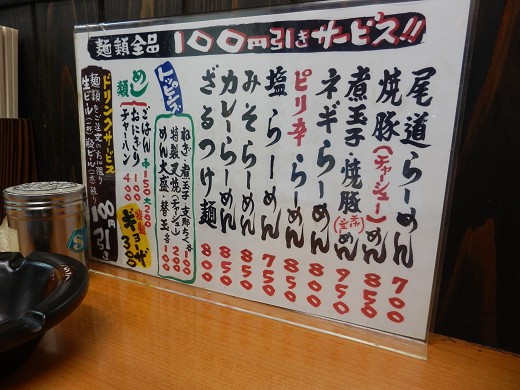 麺類全品 100円引きサービス!!
尾道らーめん 700
焼豚(チャーシュー)めん 850
煮玉子焼豚(玄蕃)めん 950
ネギらーめん 800
ピリ辛らーめん 850
塩らーめん 750
みそらーめん 850
カレーらーめん 850
ざるつけ麺 800
トッピング
ねぎ・煮玉子・支那ちく各100
特製叉焼(チャーシュー) 200
めん大盛・替玉各100
めし類
ごはん 中150 大200
おにぎり 100
チャーハン 400
ギョーザ 300
ドリンクサービス
麺類をご注文のお客様に限り
100円引き